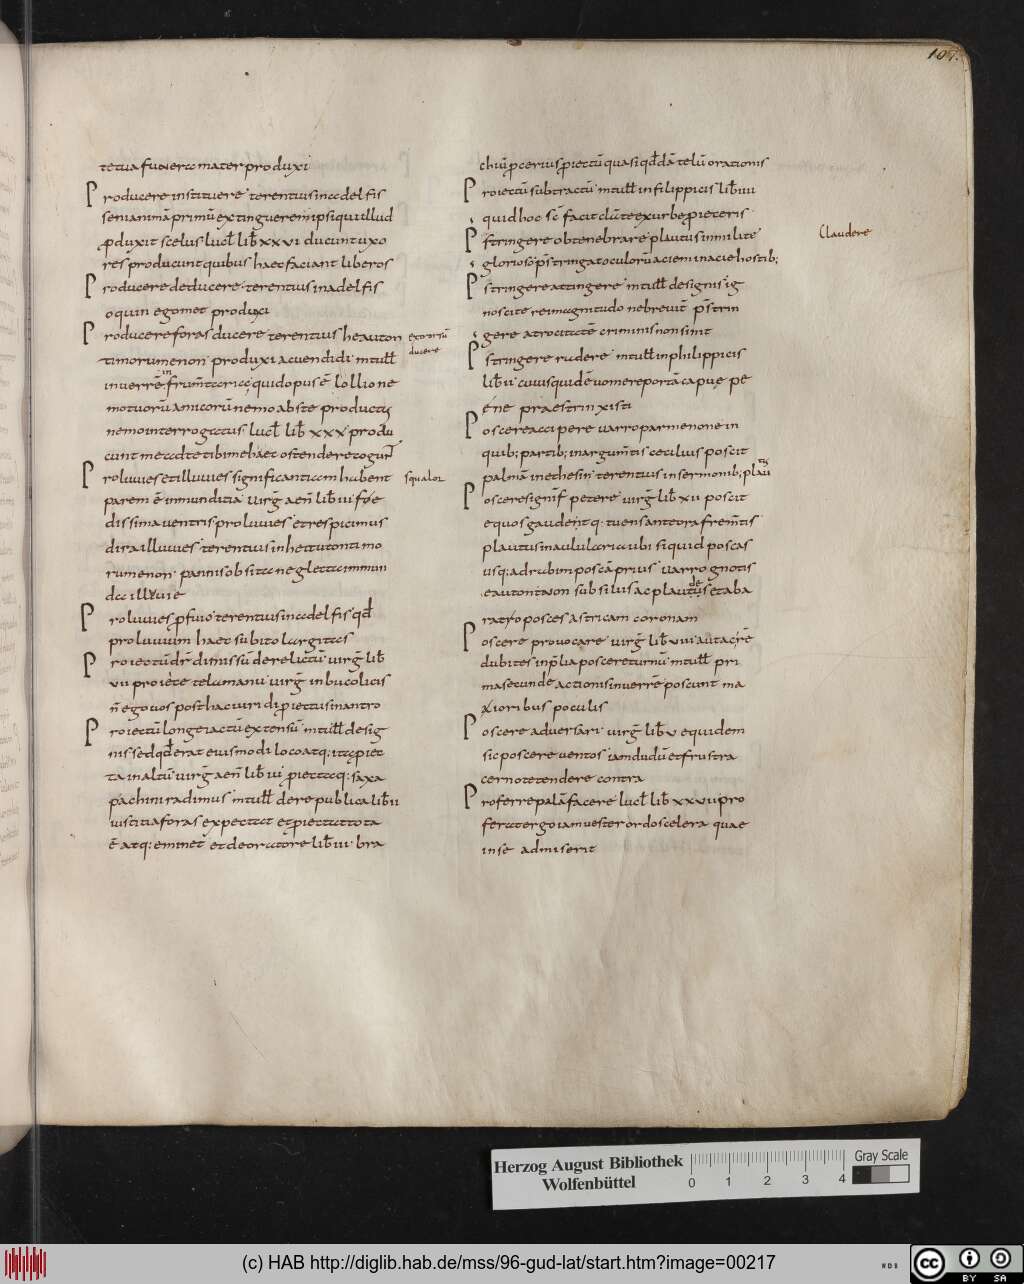 107.
tetua funera mater produxi
Producere instituere terentius in adelfis
seni animā primū extinguerem ipsi qui illud
ꝓduxit scelus lucł lib̄ xxvi ducunt uxo
res producunt quibus haec faciant liberos
Producere deducere terentius in adelfis
oquin egomet produxi
Producere foras ducere terentius heauton
timorumenon produxi ac uendidi m tull̄
in uerrē in frum̄taria quid opus ē lollio ne
motuorū amicorū nemo abs te productus
nemo interrogatus lucł lib̄ xxx produ
cunt me ad te tibi me haec ostendere cogunt
Proluuies et illuuies significantiam habent
parem ē inmunditia uirḡ aen̄ lib̄ iii foe
dissima uentris proluuies et respicimus
dira illuuies terentius in heautontimo
rumenon pannis obsita neglecta immun
da illuuie
Proluuies ꝓfluuio terentius in adelfis qđ
proluuium haec subito largitas
Proiectū dr̄ dimissū derelictū uirḡ lib̄
vii proiece tela manu uirḡ in bucolicis
n̄ ego uos posthac uiridi ꝓiectus in antro
Proiectū longe iactū extensū m tull̄ desig
nis sed qđ erat eiusmodi loco atq; ita ꝓiec
ta in altū uirḡ aen̄ lib̄ iii ꝓiectaq; saxa
pachini radimus m tull̄ de re publica lib̄ ii
iustitia foras expectat et ꝓiecta tota
ē atq; eminet et de oratore lib̄ iii bra
extrorsū
ducere
squalor
chiū ꝓcerius ꝓiectū quasi qđdā telū orationis
Proiectū subtractū m tull̄ in filippicis lib̄ iiii
quid hoc sc̄ facit clū te ex urbe ꝓieceris
Pstringere obtenebrare plautus in milite
glorioso p̄stringat oculorū aciem in acie hostib;
Pstringere attingere m tull̄ de signis ig
noscite rei magnitudo ne breuit̄ p̄strin
gere atrocitatē criminis non sint
Pstringere radere m tull̄ in philippicis
lib̄ ii cuius quidē uomere portā capuę pe
ene praestrinxisti
Poscere accipere uarro parmenone in
quib; partib; in argum̄tis cecilius poscit
palmā in ethesin terentius in sermonib; plaut
Poscere signif̄ petere uirḡ lib̄ xii poscit
equos gaudentq; tuens ante ora frem̄tis
plautus in aulularia ubi si quid poscas
usq; ad rabim poscā prius uarro gnotis
eauton tauon subsilus ac plaudens et aba
ratyo posces a stricam coronam
Poscere prouocare uirḡ lib̄ viii aut acr̄e
dubites in p̄lia poscere turnū m tull̄ pri
ma secundē actionis in uerrē poscunt ma
xioribus poculis
Poscere aduersari uirḡ lib̄ v equidem
sic poscere uentos iamdudū et frustra
cerno te tendere contra
Proferre palā facere lucł lib̄ xxvii pro
ferat ergo iam uester ordo scelera quae
in se admiserit
Claudere
Herzog August Bibliothek
Wolfenbüttel
0 1 2 3 4
Gray Scale
(c) HAB http://diglib.hab.de/mss/96-gud-lat/start.htm?image=00217
WDB
cc BY SA